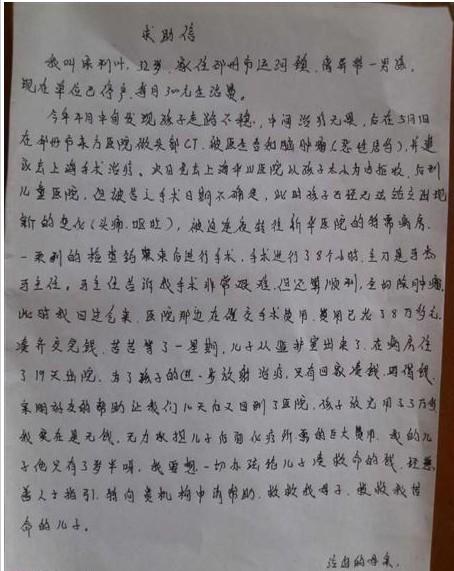 求助信
我叫宋利叶，32岁，家住邳州市运河镇，离异带一男孩，
现在单位已停产，每月300元生活费。
今年4月中旬发现孩子走路不稳，中间治疗无果，后在5月1日
在邳州市东方医院做头部CT，被医生告知脑肿瘤（恶性居多），并建
议去上海手术治疗。次日先去上海中山医院以孩子太小为由拒收，后到
儿童医院，但被告之手术日期不确定，此时孩子已经无法站立出现
新的变化（头痛、呕吐），被迫连夜转往新华医院的特需病房。
一系列的检查结束后进行手术，手术进行了8个小时，主刀是马杰
马主任。马主任告诉我手术非常艰难，但还算顺利，全切除肿瘤
此时我回过神来，医院那边在催交手术费用，费用已花了8万多元
凑齐交完钱，苦苦等了一星期，儿子从监护室出来了，在病房住
了19天出院，为了孩子的进一步放射治疗，只有回家凑钱、借钱
亲朋好友的帮助让我们10天后又回到了医院，孩子放完用了3万多
我实在是无钱，无力承担儿子后面化疗所需的巨大费用，我的儿
子他只有3岁半呀，我要想一切办法给儿子凑救命的钱，经
善人士指引，特向贵机构申请帮助，救救我母子，救救我苦
命的儿子。
的母亲